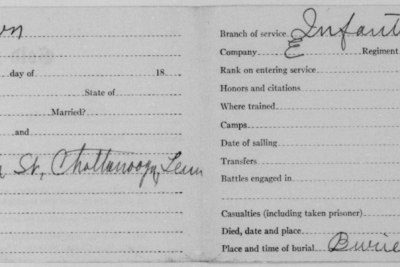 on
day of 18
State of
Married?
and
St, Chattanooga, Tenn
Branch of service Infant
Company E Regiment
Rank on entering service
Honors and citations
Where trained
Camps
Date of sailing
Transfers
Battles engaged in
Casualties (including taken prisoner)
Died, date and place
Place and time of burial